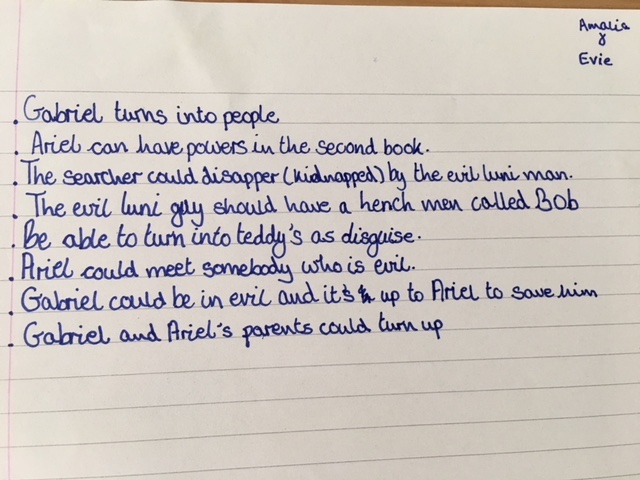 Amalia
&
Evie
. Gabriel turns into people
. Ariel can have powers in the second book.
. The searcher could disapper (kidnapped) by the evil luni man.
. The evil luni guy should have a hench men called Bob
. Be able to turn into teddy's as disguise.
. Ariel could meet somebody who is evil.
. Gabriel could be in evil and it's up to Ariel to save him
. Gabriel and Ariel's parents could turn up